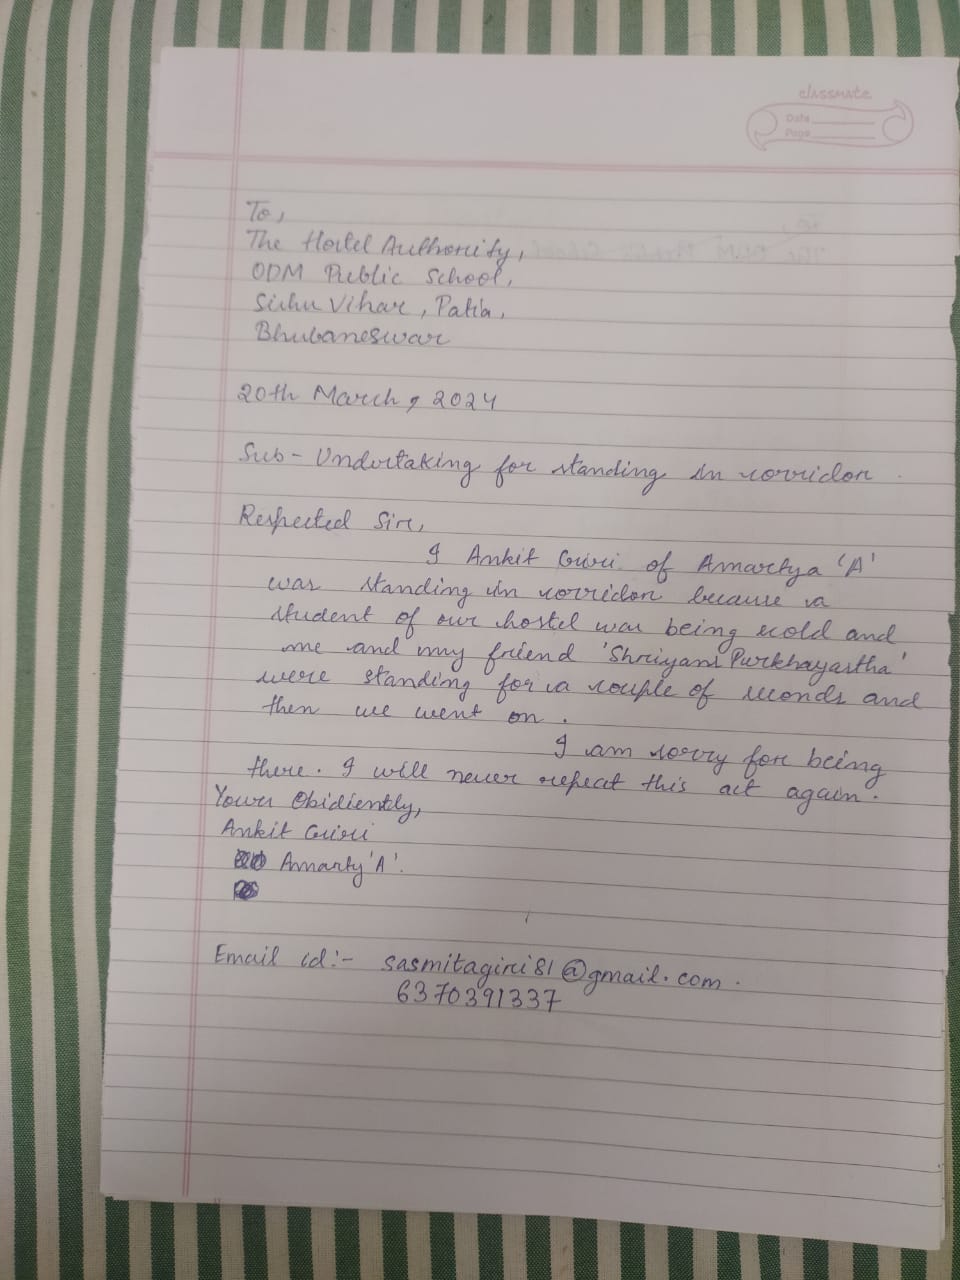 classmate
Date
Page
To,
The Hostel Authority,
ODM Public School,
Sishu Vihar, Patia,
Bhubaneswar
20th March, 2024
Sub- Undertaking for standing in corridor.
Respected Sir,
I Ankit Giri of Amartya 'A'
was standing in corridor because a
student of our hostel was being scold and
me and my friend 'Shriyans Purkhayastha'
were standing for a couple of seconds and
then we went on.
I am sorry for being
there. I will never repeat this act again.
Your Obidiently,
Ankit Giri
Amarty 'A'.
Email id:- sasmitagiri81@gmail.com.
6370391337